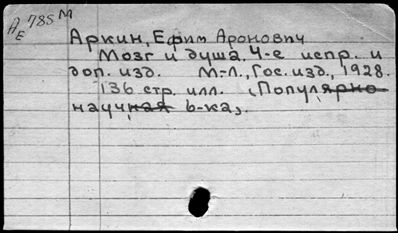 A 785 M
E
Аркин, Ефим Аронович
Мозг и душа. 4-е испр. и
доп. изд. М-Л., Гос. изд., 1928.
136 стр. илл. (Популярно
научная б-ка).